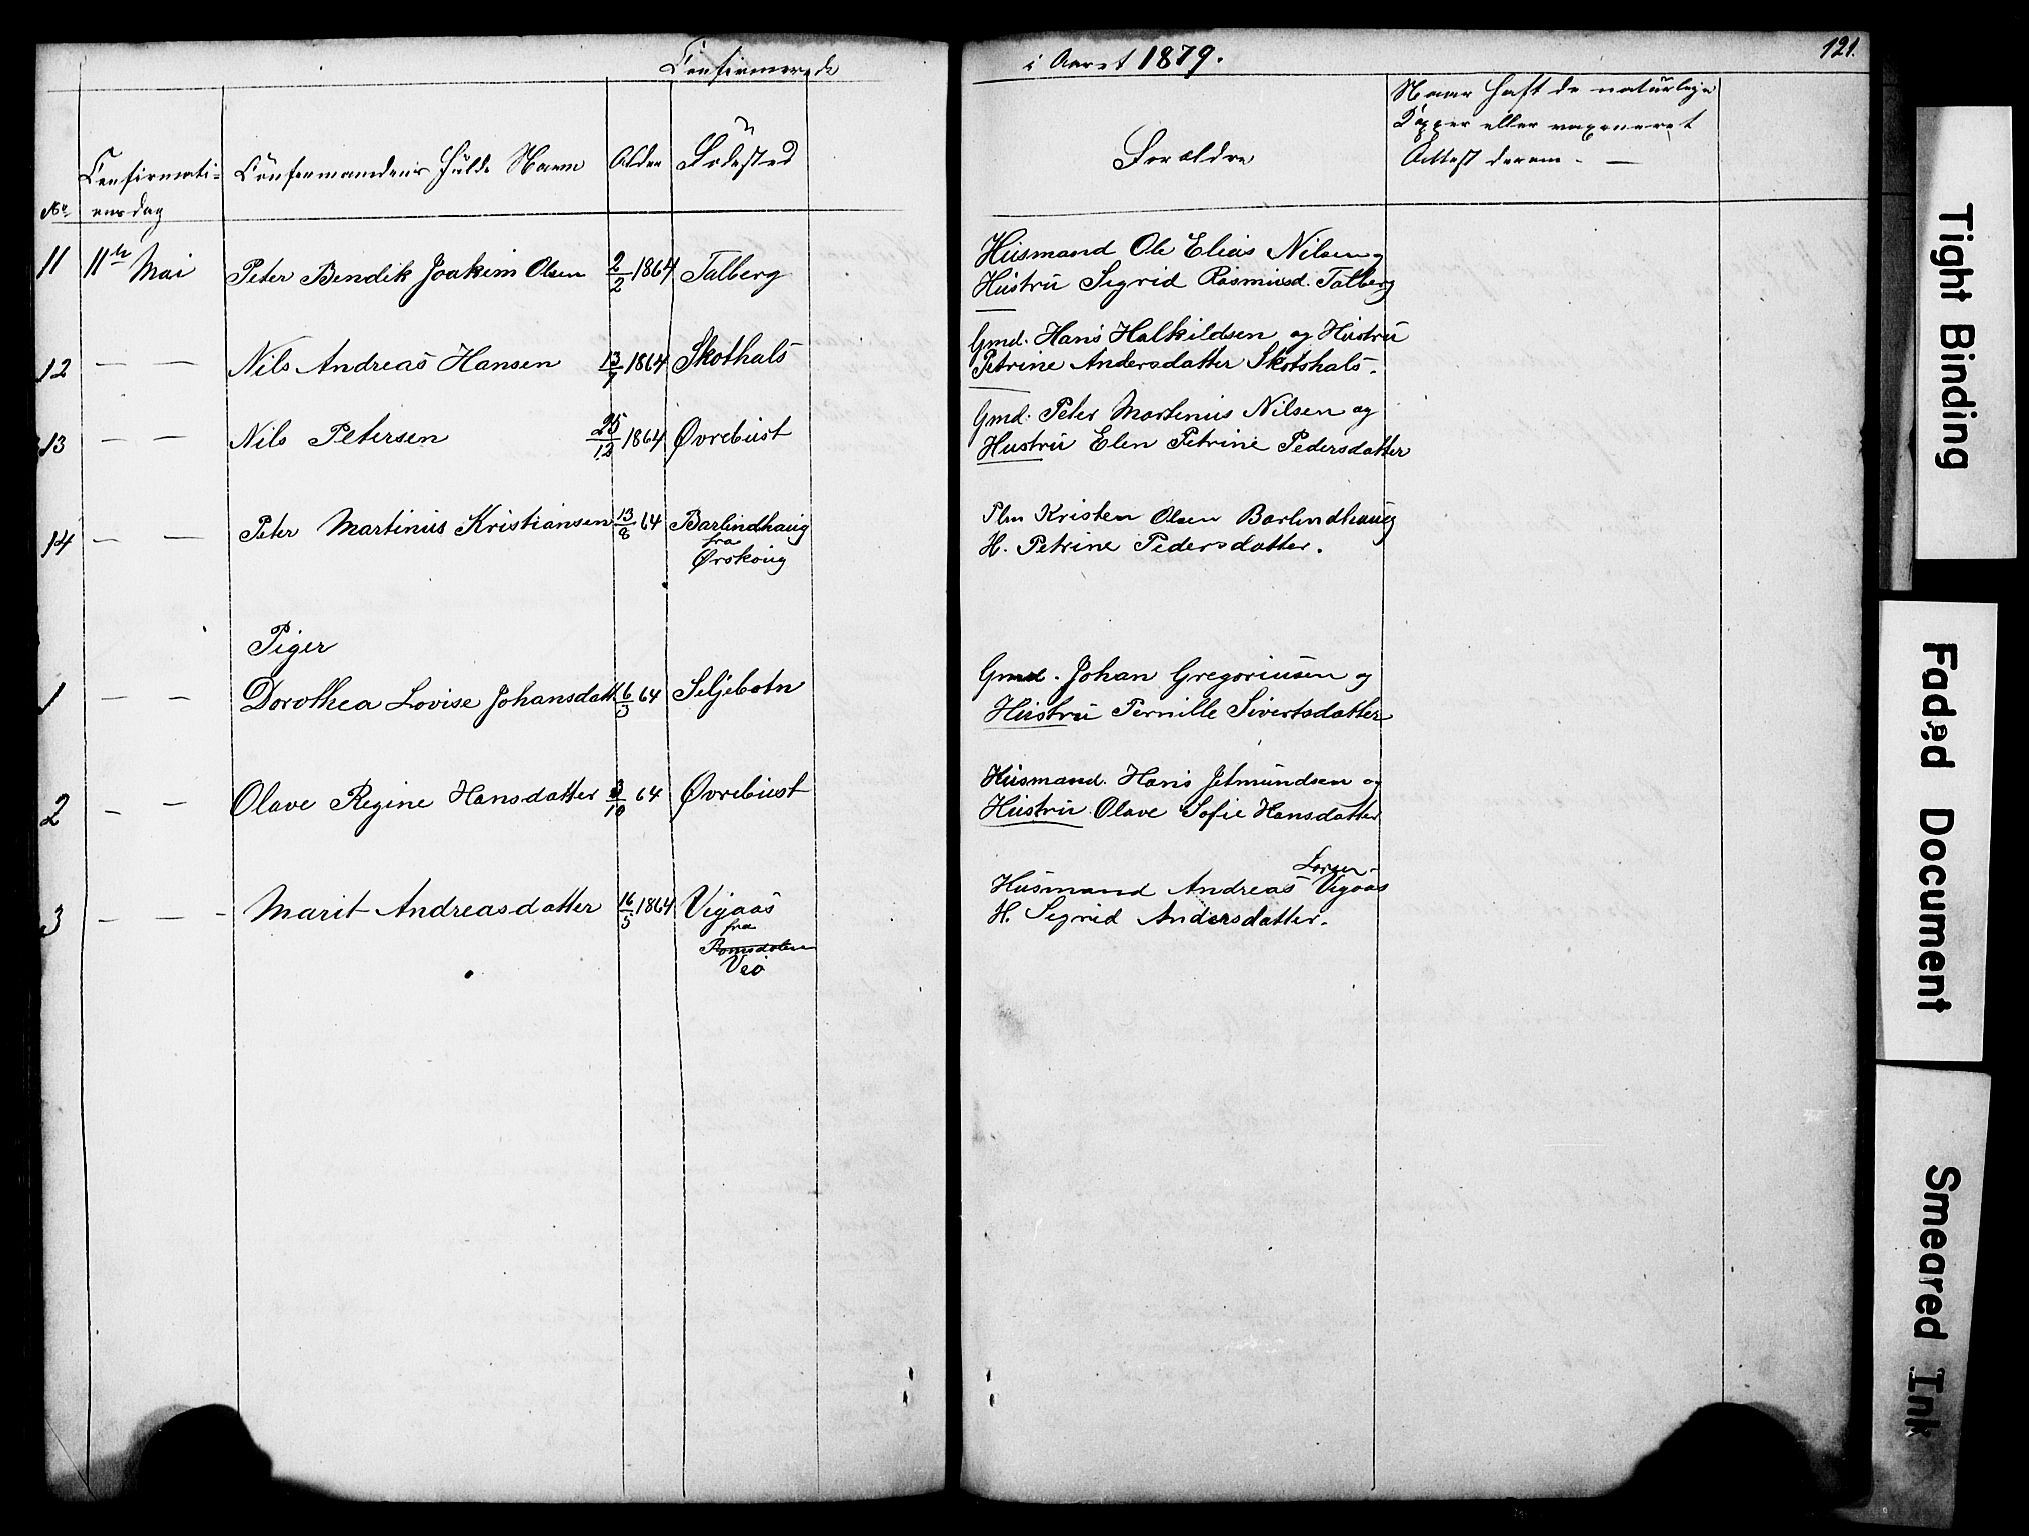 Confirmerede i Aaret 1879.
121.
No
Confirmati-
onsdag
Confirmandens fulde Navn
Alder
Fødested
Forældre
Naar haft de naturlige
Kopper eller vaxineret
Attest derom. —
11 11te Mai Peter Bendik Joakim Olsen 2/2 1864 Talberg
Husmand Ole Elias Nilsen og
Hustru Sigrid Rasmusd. Talberg
12 — — Nils Andreas Hansen 13/7 1864 Skothals
Gmd. Hans Halkildsen og Hustru
Petrine Andersdatter Skotshals.
13 — — Nils Petersen 25/12 1864 Øvrebust
Gmd. Peter Martinus Nilsen og
Hustru Elen Petrine Pedersdatter
14 — — Peter Martinus Kristiansen 13/8 64 Barlindhaug
fra
Ørskoug
Plm Kristen Olsen Barlindhaug
H. Petrine Pedersdatter.
Piger
1 — — Dorothea Lovise Johansdatt 6/5 64 Seljebotn
Gmd. Johan Gregoriusen og
Hustru Pernille Sivertsdatter
2 — — Olave Regine Hansdatter 3/10 64 Øvrebust
Husmand. Hans Jetmundsen og
Hustru Olave Sofie Hansdatter
3 — — - Marit Andreasdatter 16/5 1864 Vigaas
fra
Romsdalen
Veø
Husmand Andreas Larsen Vigaas
H. Sigrid Andersdatter.
Tight Binding
Faded Document
Smeared Ink